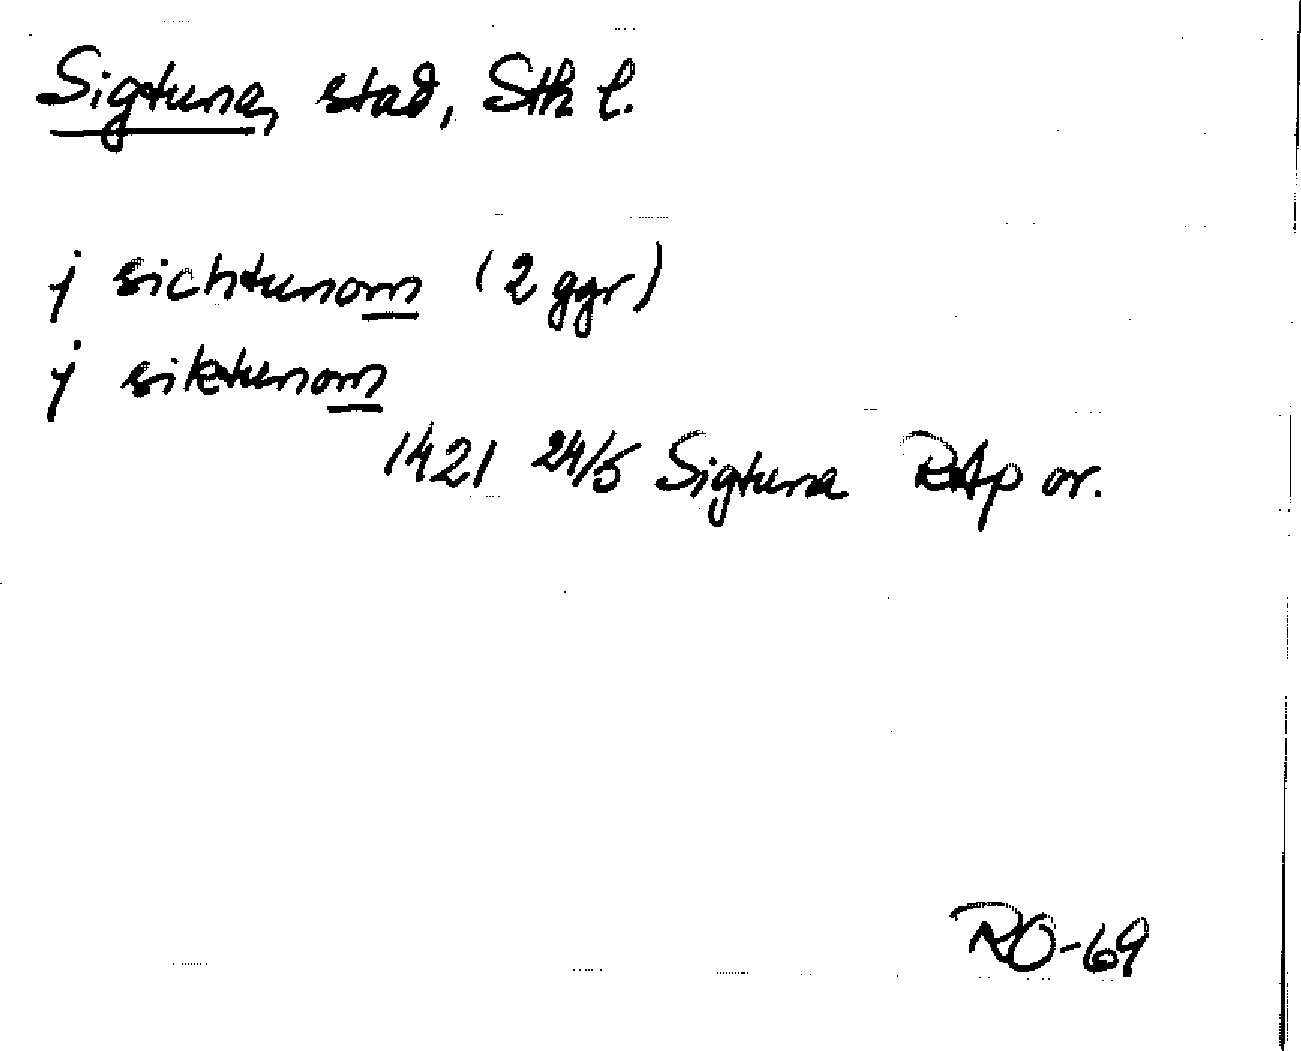 Sigtuna, stad, Sth l.
j sichtunom (2 ggr)
j siktunom
1421 24/5 Sigtuna RAp or.
RO-69